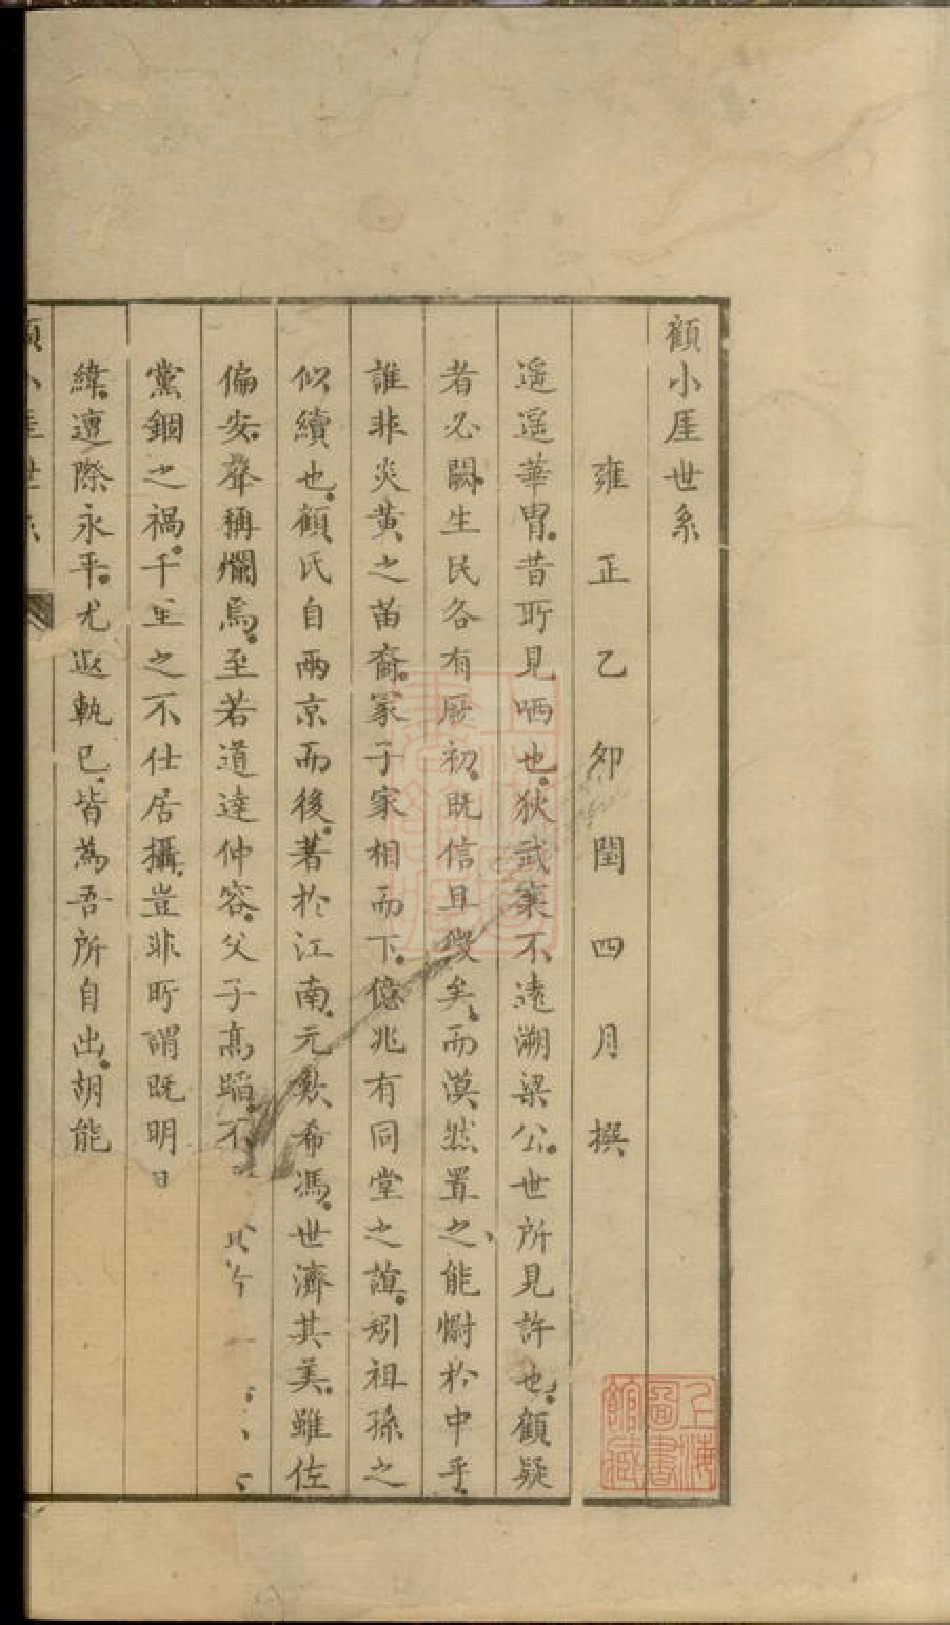 顧小厓世系
雍正乙卯閏四月撰
遥遥華胄昔所見哂也狄武襄不遠溯梁公世所見許也顧疑
者必闕生民各有厥初既信且傻矣而漠然置之能慰於中乎
誰非炎黄之苗裔冢子家相而下億兆有同堂之誼矧祖孫之
似續也顧氏自兩京而後著於江南元歎希馮世濟其美雖佐
偏安羣稱爛焉至若道達仲容父子高蹈不
黨錮之禍千里之不仕居攝豈非所謂既明
緯遭際永平尤返軌已皆為吾所自出胡能
上海圖書館藏